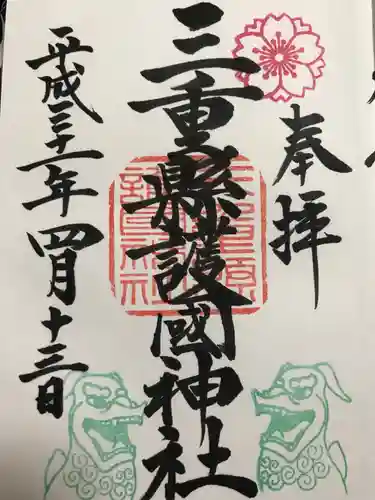 奉拝
三重縣護國神社
平成三十一年四月十三日